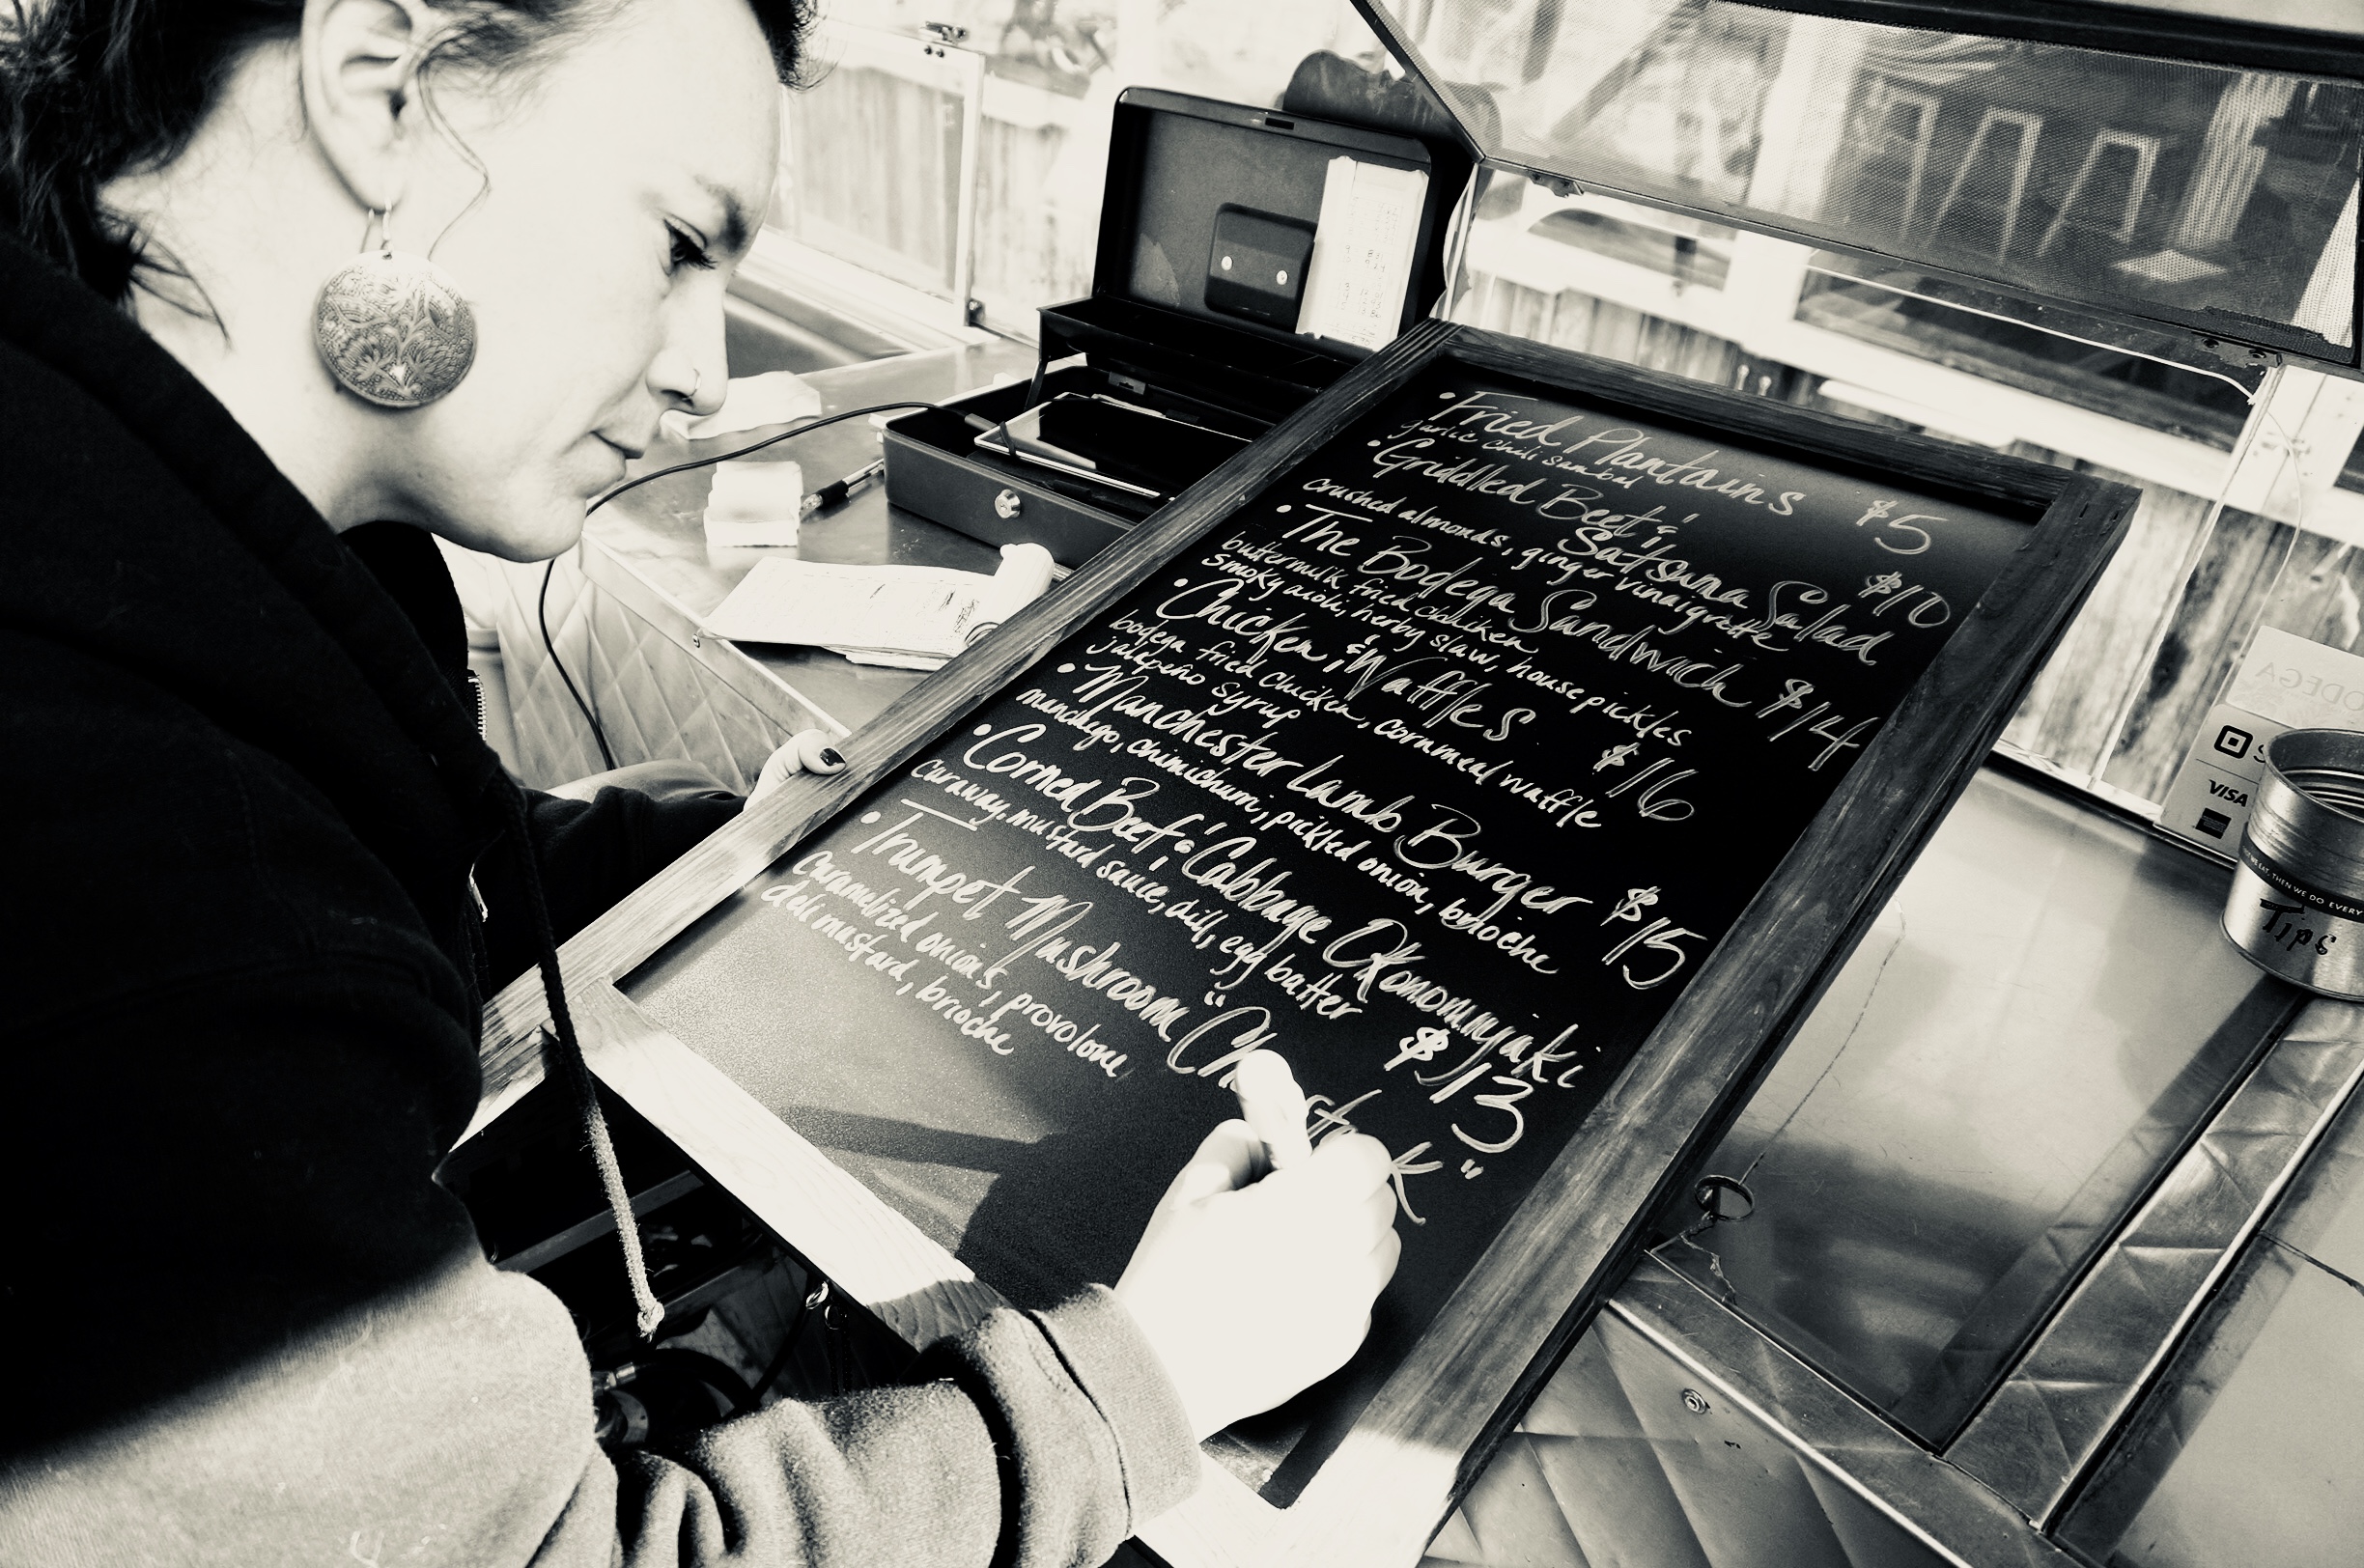 • Fried Plantains $5
garlic chili sambal
• Griddled Beet &
Satsuma Salad $10
crushed almonds, ginger vinaigrette
• The Bodega Sandwich $14
buttermilk fried chicken
smoky aioli, herby slaw, house pickles
• Chicken & Waffles $16
bodega fried chicken, cornmeal waffle
jalapeño syrup
• Manchester Lamb Burger $15
manchego, chimichurri, pickled onion, brioche
• Corned Beef & Cabbage Okonomiyaki $13
caraway, mustard sauce, dill, egg batter
• Trumpet Mushroom "Ch stk"
caramelized onions, provolone
deli mustard, brioche
BODEGA
S
VISA
EAT, THEN WE DO EVERY
Tips